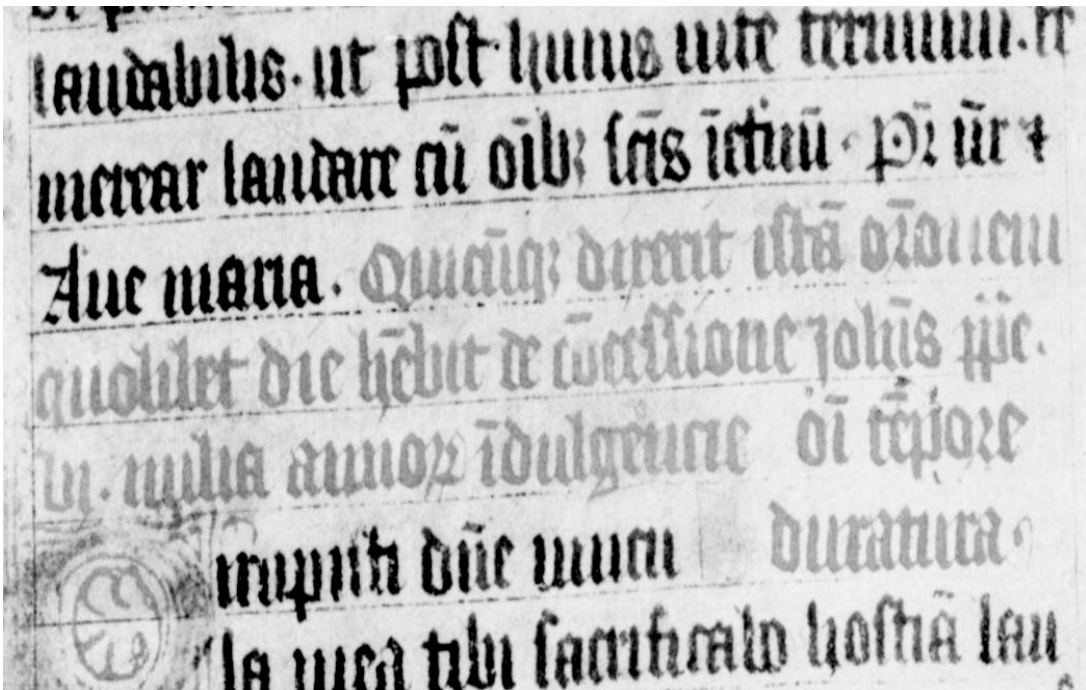 laudabilis. ut post huius uite terminum. te
merear laudare cū oīb; scīs īetnū. Pr̄ nr̄ ⁊
Aue maria. Quicūq; dixerit istā orōnem
quolibet die hēbit de cōcessione Johīs pp̄e.
vi. milia annoꝝ īdulgēncie oī tēpore
duratura
irupisti dn̄e uincu
la mea tibi sacrificabo hostiā lau